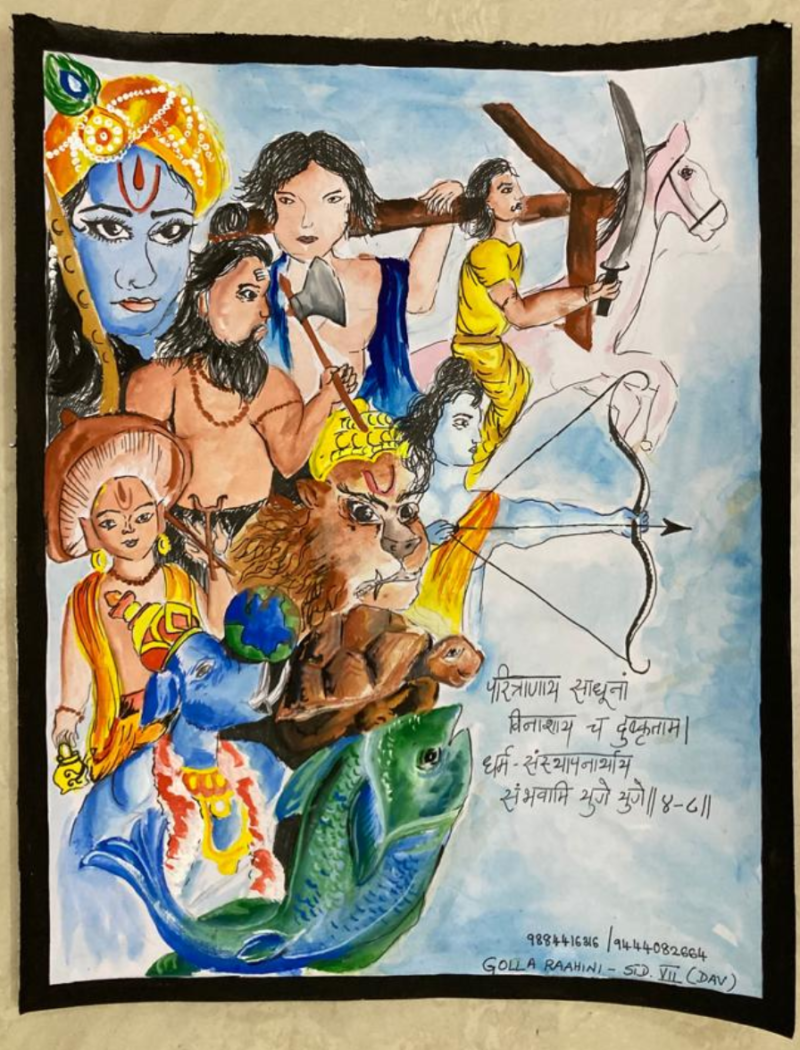 परित्राणाय साधूनां
विनाशाय च दुष्कृताम।
धर्म-संस्थापनार्थाय
संभवामि युगे युगे॥४-८॥
9884416316 / 9444082664
GOLLA RAAHINI - STD. VII (DAV)